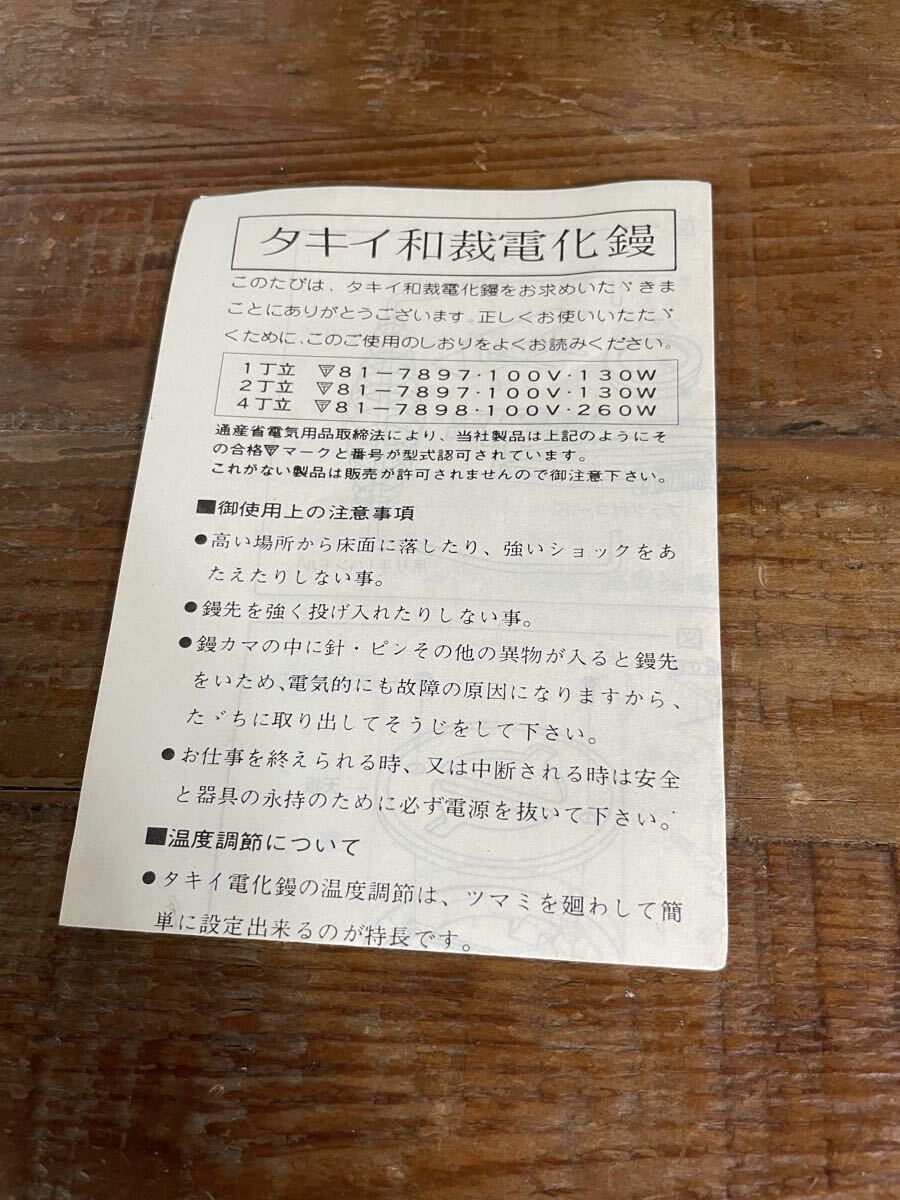 タキイ和裁電化鏝
このたびは、タキイ和裁電化鏝をお求めいたゞきま
ことにありがとうございます。正しくお使いいたたゞ
くために、このご使用のしおりをよくお読みください。
1丁立 〒81-7897·100V·130W
2丁立 〒81-7897·100V·130W
4丁立 〒81-7898·100V·260W
通産省電気用品取締法により、当社製品は上記のようにそ
の合格〒マークと番号が型式認可されています。
これがない製品は販売が許可されませんので御注意下さい。
■御使用上の注意事項
●高い場所から床面に落したり、強いショックをあ
たえたりしない事。
●鏝先を強く投げ入れたりしない事。
●鏝カマの中に針・ピンその他の異物が入ると鏝先
をいため、電気的にも故障の原因になりますから、
たゞちに取り出してそうじをして下さい。
●お仕事を終えられる時、又は中断される時は安全
と器具の永持のために必ず電源を抜いて下さい。
■温度調節について
●タキイ電化鏝の温度調節は、ツマミを廻わして簡
単に設定出来るのが特長です。